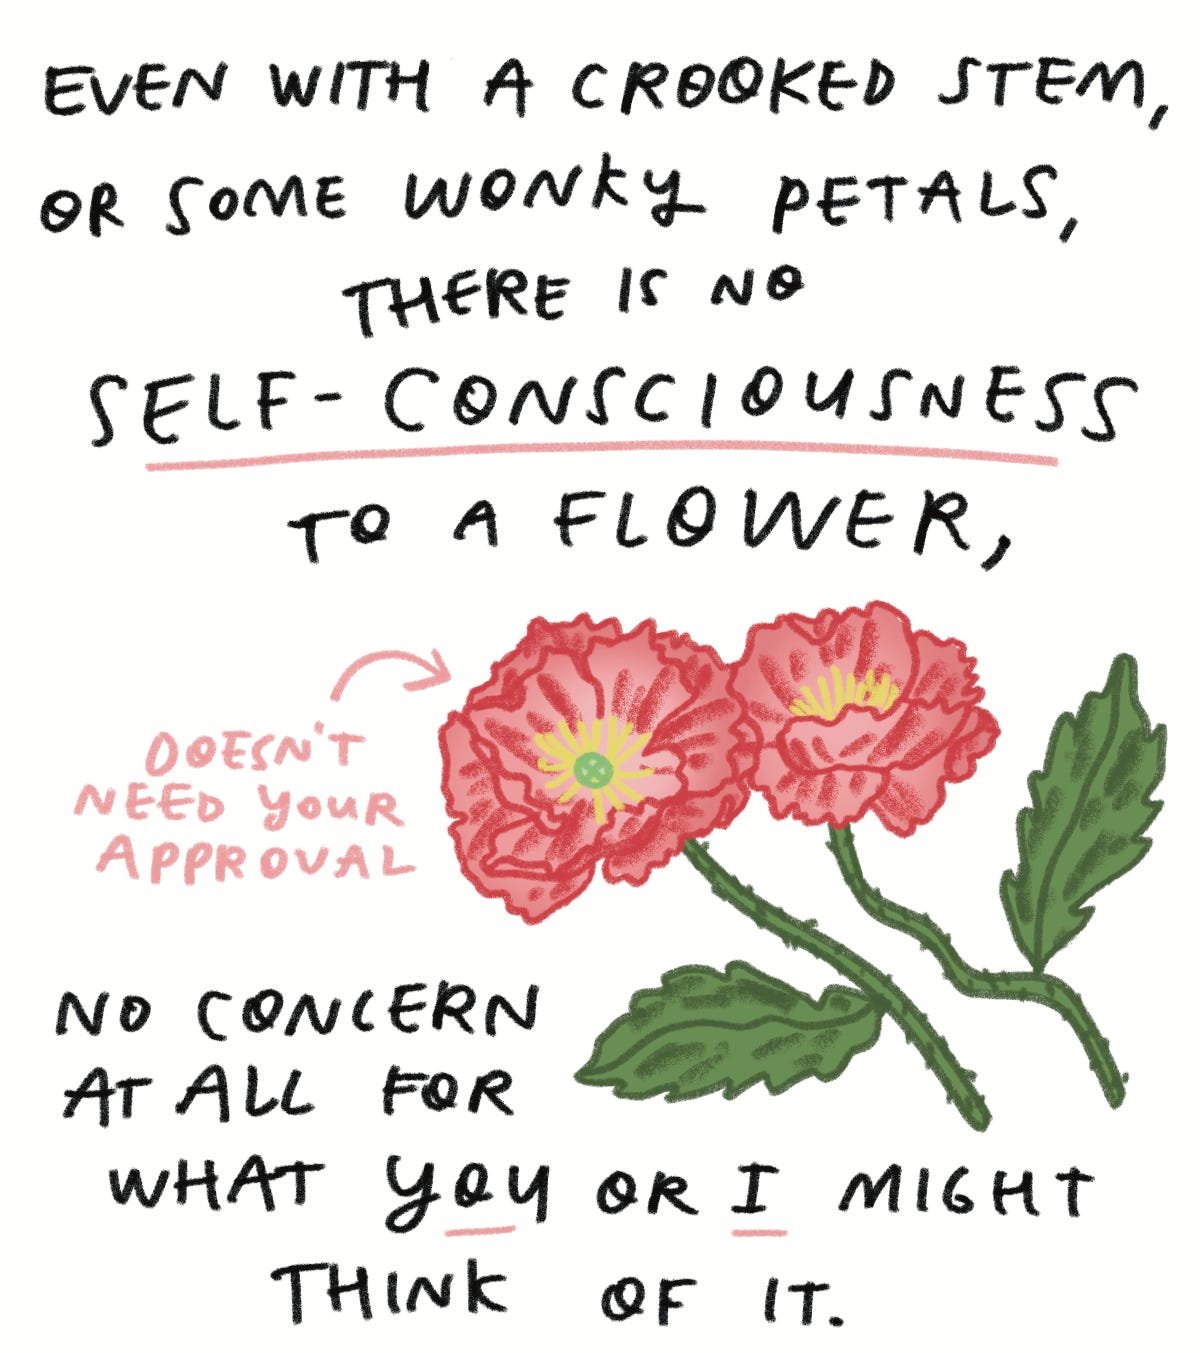 EVEN WITH A CROOKED STEM,
OR SOME WONKY PETALS,
THERE IS NO
SELF-CONSCIOUSNESS
TO A FLOWER,
DOESN'T
NEED YOUR
APPROVAL
NO CONCERN
AT ALL FOR
WHAT YOU OR I MIGHT
THINK OF IT.